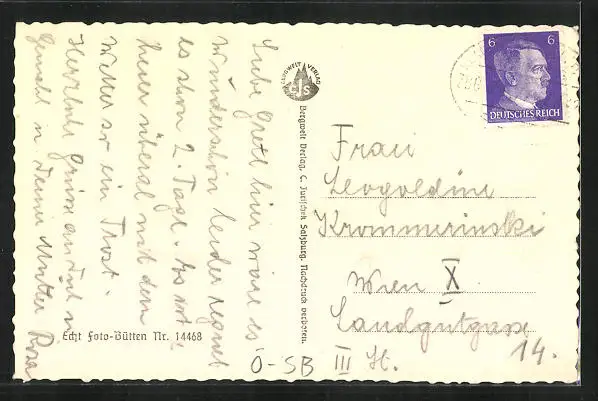 Liebe Gretl hier wäre es
wunderschön leider regnet
es schon 2. Tage. Es ist
heuer überal mit dem
Wetter so ein Trost.
Herzliche Grüsse an dich u
Gemahl u Deine Mutter Rosa
BERGWELT VERLAG
CJS
Bergwelt Verlag, C. Jurischek Salzburg. Nachdruck verboten.
Echt Foto-Bütten Nr. 14468
6 6
DEUTSCHES REICH
Frau
Leopoldine
Krommerinski
Wien X
Landgutgasse
14.
Ö-SB III H.